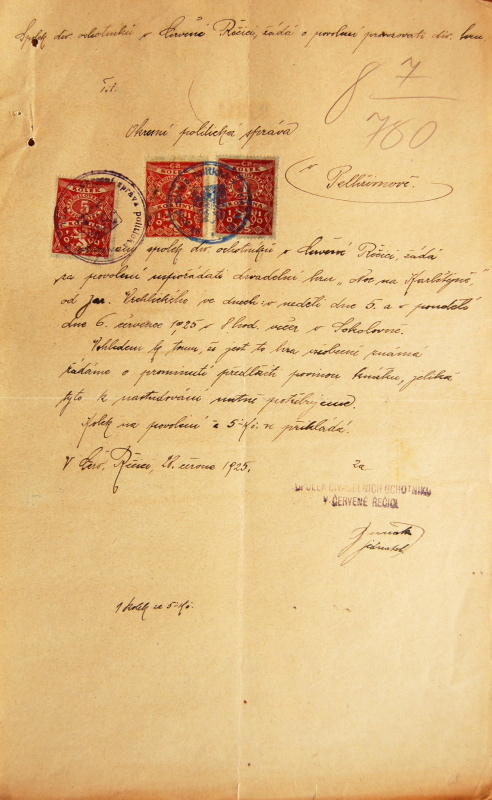 Spolek div. ochotníků v Červené Řečici, žádá o povolení provozovati div. hru
8 7/760
Okresní politická správa
v Pelhřimově.
ČR
KOLEK
KORUN
5
ČR
KOLEK
KORUNA
1
ČR
KOLEK
KORUNA
1
spolek div. ochotníků v Červené Řečici, žádá
za povolení uspořádati divadelní hru „Noc na Karlštýně"
od Jar. Vrchlického ve dnech: v neděli dne 5. a v pondělí
dne 6. července 1925 v 8 hod. večer v Sokolovně.
Vzhledem k tomu, že jest to hra všobecně známá
žádáme o prominutí předložiti povinou knížku, jelikož
tyto k nastudování nutně potřebujeme.
Kolek na povolení à 5 Kč. se přikládá.
V Červ. Řečici, 28. února 1925.
Za
SPOLEK DIVADELNÍCH OCHOTNÍKŮ
V ČERVENÉ ŘEČICI
jednatel
1 kolek za 5 Kč.